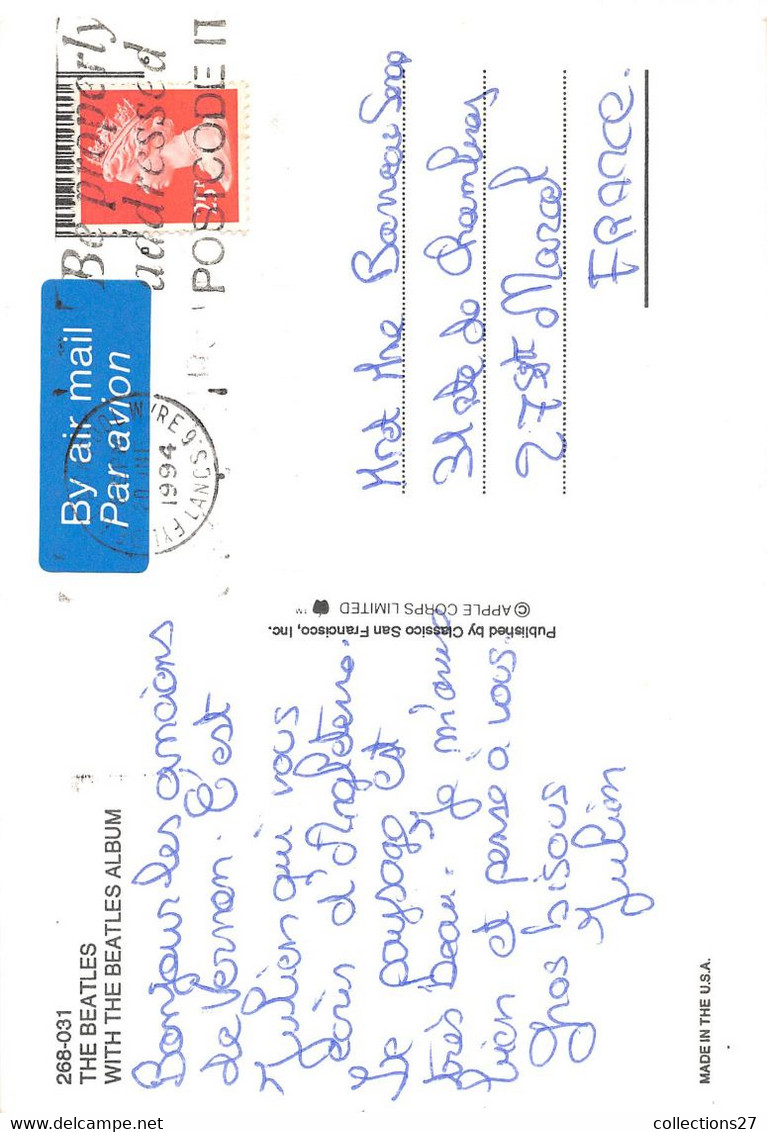 268-031
THE BEATLES
WITH THE BEATLES ALBUM
Bonjour les anciens
de Vernon. C'est
Julien qui vous
écris d'Angleterre.
Le paysage est
très beau. Je m'amuse
bien et pense à vous.
Gros bisous
Julien
MADE IN THE U.S.A.
Published by Classico San Francisco, Inc.
© APPLE CORPS LIMITED
Be properly
addressed
POSTCODE IT
By air mail
Par avion
WYRE
1994
FYLDE
Mr et Mme
31 de
27 St Marcel
FRANCE.
collections27